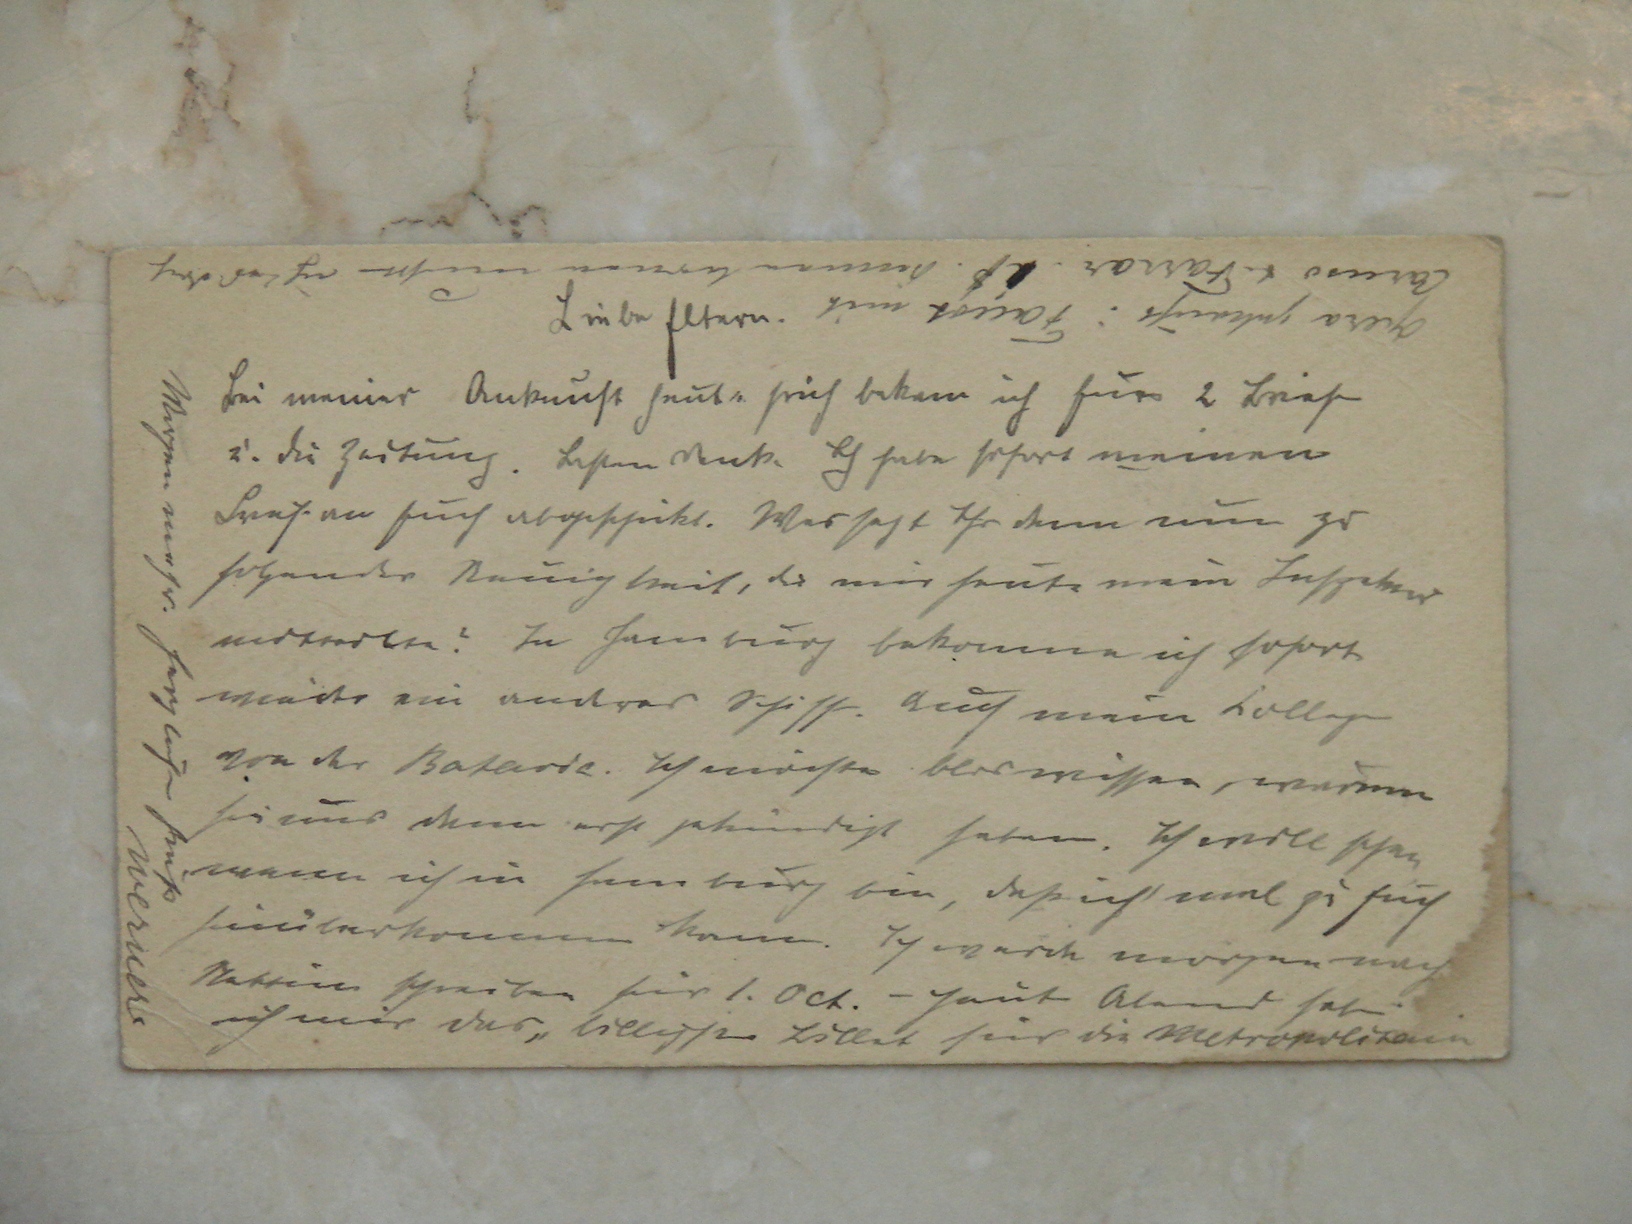 Liebe Eltern.
Bei meiner Ankunft heute früh bekam ich Eure 2 Briefe
u. die Zeitung. Besten Dank. Ich habe sofort meinen
Brief an Euch abgeschickt. Was sagt Ihr denn nun zu
folgender Neuigkeit, die mir heute mein Inspektor
mitteilte? In Hamburg bekomme ich sofort
wieder ein anderes Schiff. Auch mein Kollege
von der Batavia. Ich möchte blos wissen, warum
sie uns denn erst gekündigt haben. Ich will sehen
wenn ich in Hamburg bin, daß ich mal zu Euch
hinüberkommen kann. Ich werde morgen nach
Stettin schreiben für 1. Oct. – Heute Abend habe
ich mir das „billigste Billet für die Metropolitain
Opera gekauft: Faust mit
Caruso u. Farrar.
Morgen mehr. Herzliche Grüße
Werner